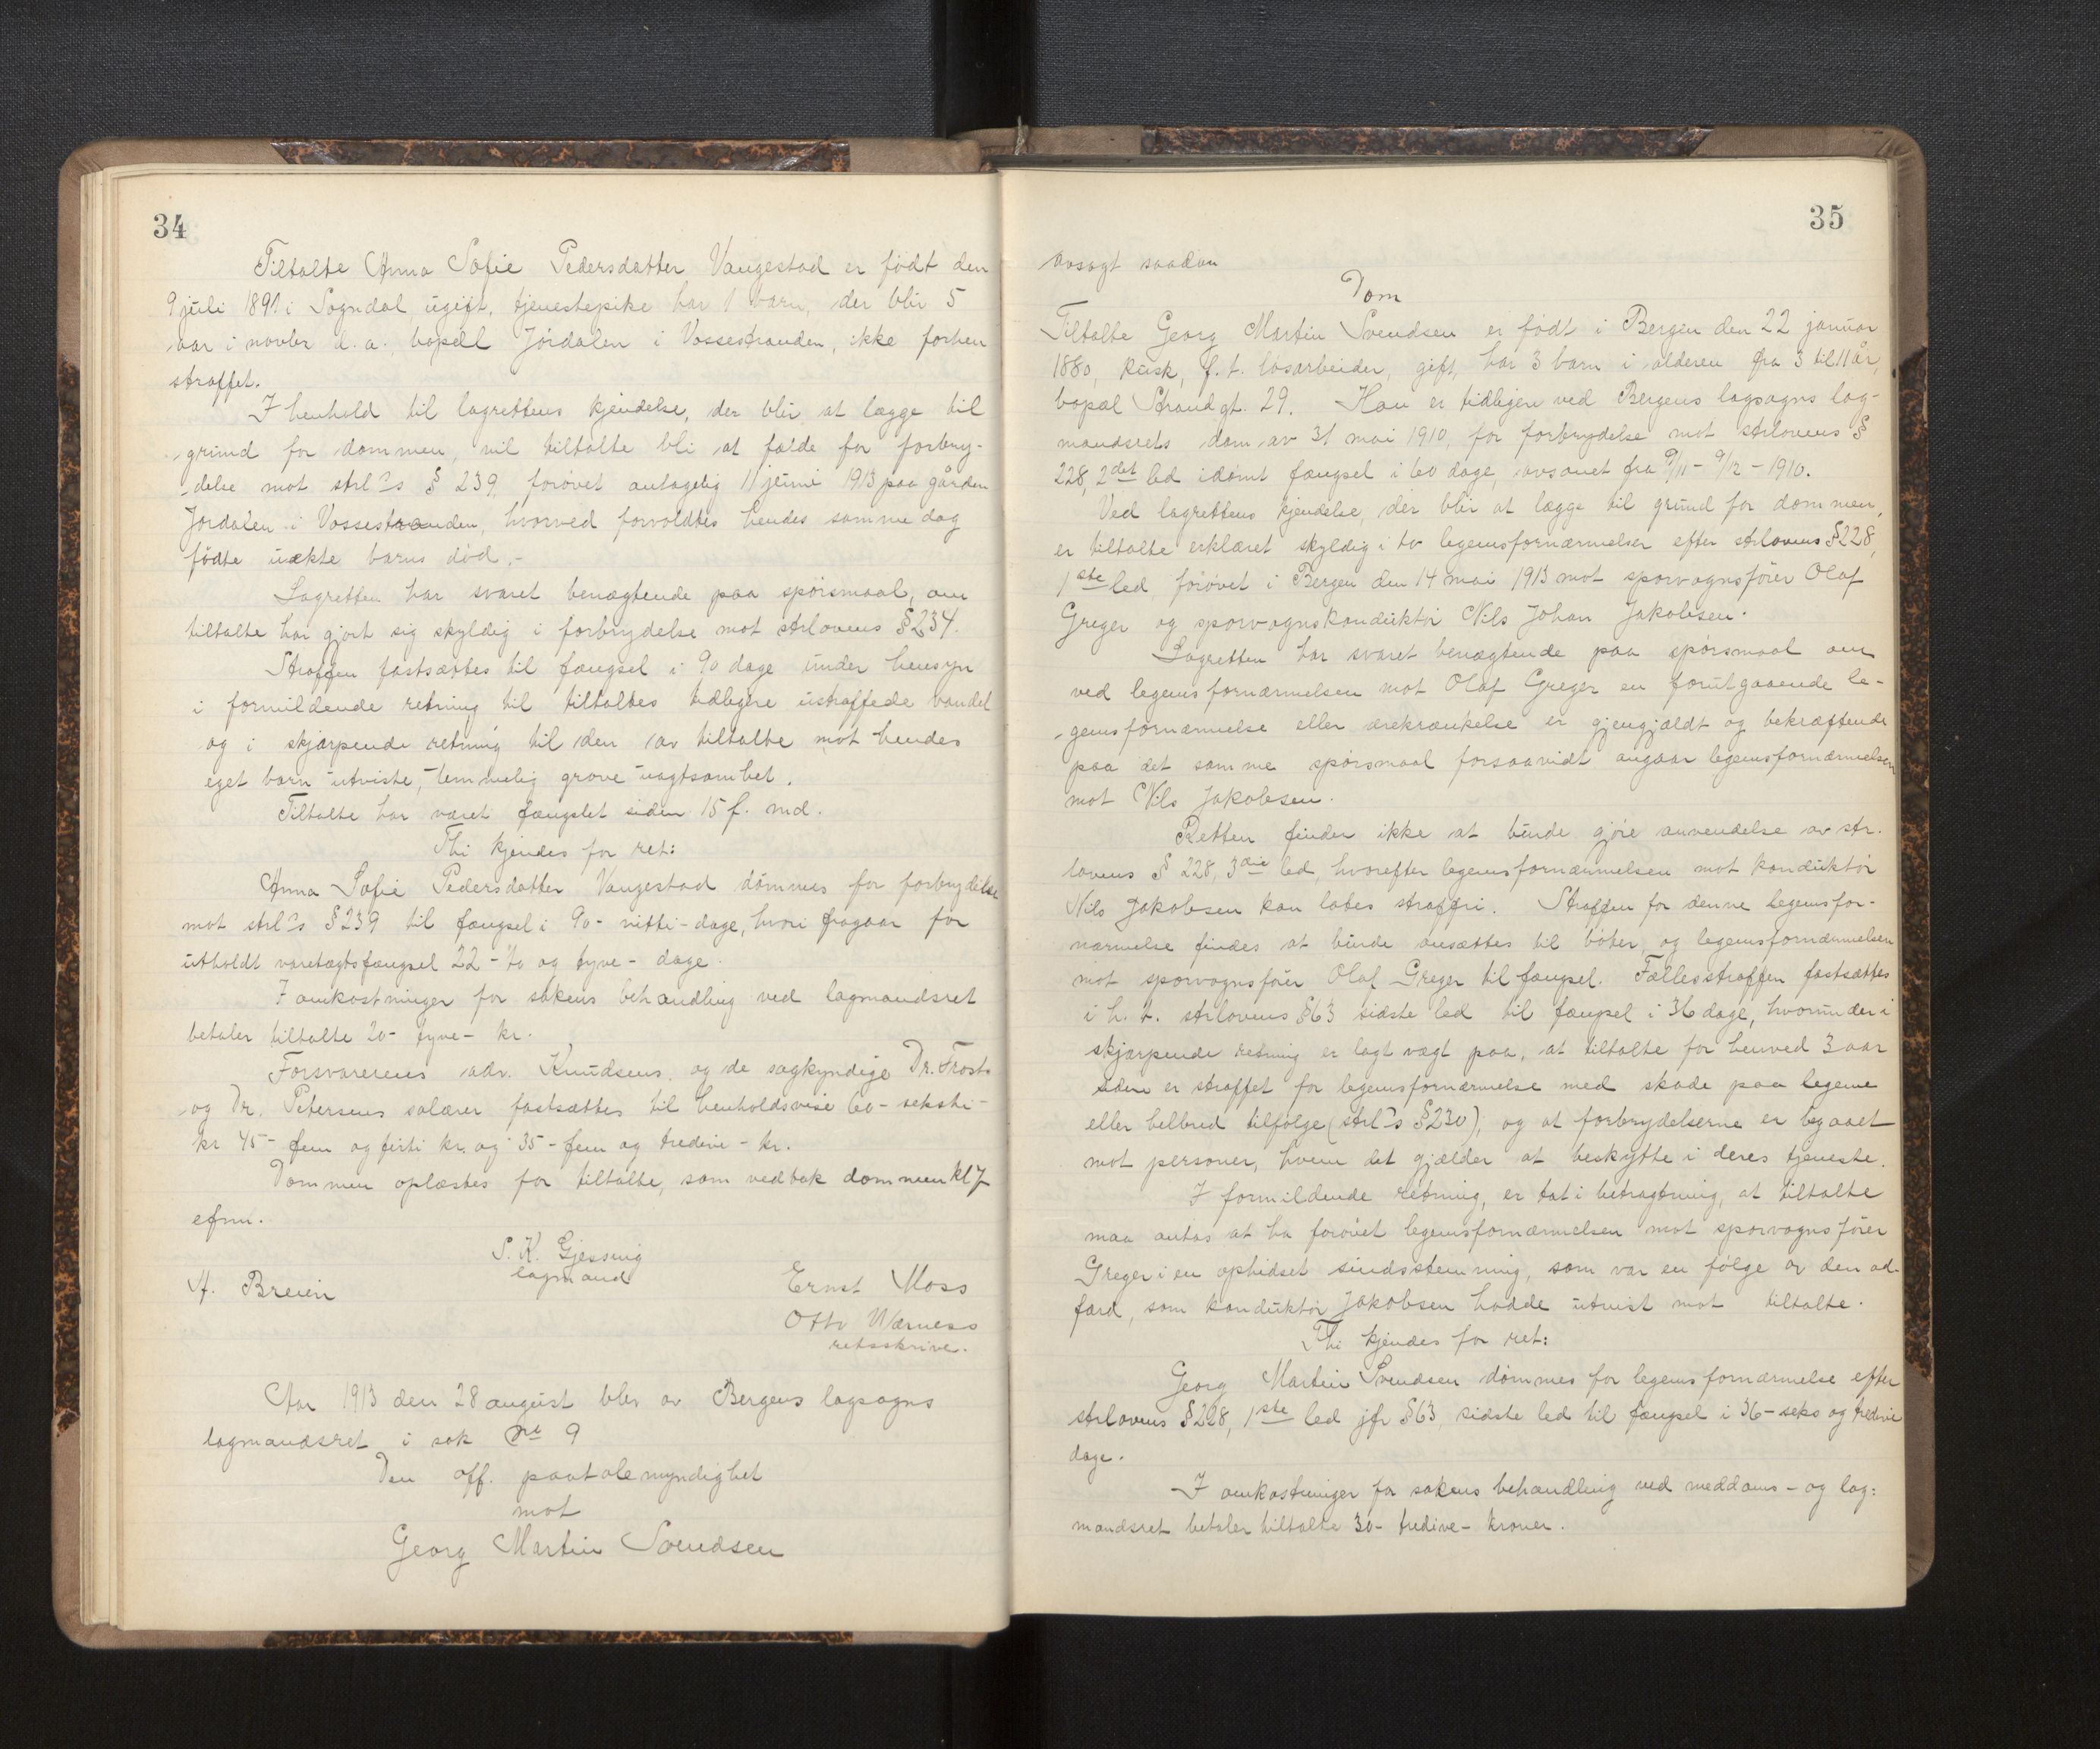 34
Tiltalte Anna Sofie Pedersdatter Vangestad er født den
9 juli 1891 i Sogndal, ugift, tjenestepike har 1 barn, der blir 5
aar i novbr d. a., bopæl Jordalen i Vossestranden, ikke forhen
straffet.
I henhold til lagrettens kjendelse, der blir at lægge til
grund for dommen, vil tiltalte bli at fælde for forbry-
delse mot strl~s § 239, forøvet antagelig 11 juni 1913 paa gården
Jordalen i Vossestranden, hvorved forvoldtes hendes samme dag
fødte uækte barns død. -
Lagretten har svaret benægtende paa spørsmaal, om
tiltalte har gjort sig skyldig i forbrydelse mot strlovens § 234.
Straffen fastsættes til fængsel i 90 dage under hensyn
i formildende retning til tiltaltes tidligere ustraffede vandel
og i skjærpende retning til den av tiltalte mot hendes
eget barn utviste, temmelig grove uagtsomhet.
Tiltalte har været fængslet siden 15 f. md.
Thi kjendes for ret:
Anna Sofie Pedersdatter Vangestad dømmes for forbrydelse
mot strl~s § 239 til fængsel i 90 - nitti - dage, hvori fragaar for
utholdt varetægtsfængsel 22 - to og tyve - dage.
I omkostninger for sakens behandling ved lagmandsret
betaler tiltalte 20 - tyve - kr.
Forsvarerens adv. Knudsens og de sagkyndige Dr. Frosts
og Dr. Petersens salærer fastsættes til henholdsvise 60 - seksti -
kr 45 - fem og førti kr. og 35 - fem og tredive - kr.
Dommen oplæstes for tiltalte, som vedtok dommen kl 7
efm.
S. K. Gjessing
lagmand
A. Breien
Ernst Moss
Otto Wærness
retsskriver.
Aar 1913 den 28 august blev av Bergens lagsogns
lagmandsret i sak nr 9
Den off. paatalemyndighet
mot
Georg Martin Svendsen
35
avsagt saadan
Dom
Tiltalte Georg Martin Svendsen er født i Bergen den 22 januar
1880, kusk, f. t. løsarbeider, gift, har 3 barn i alderen fra 3 til 11 år,
bopæl Strandgt. 29. Han er tidligere ved Bergens lagsogns lag-
mandsrets dom av 31 mai 1910, for forbrydelse mot strlovens §
228, 2det led idømt fængsel i 60 dage, avsonet fra 9/11 - 9/12 - 1910.
Ved lagrettens kjendelse, der blir at lægge til grund for dommen,
er tiltalte erklæret skyldig i to legemsfornærmelser efter strlovens § 228,
1ste led, forøvet i Bergen den 14 mai 1913 mot sporvognsfører Olaf
Greger og sporvognskonduktør Nils Johan Jakobsen.
Lagretten har svaret benægtende paa spørsmaal om
ved legemsfornærmelsen mot Olaf Greger en forutgaaende le-
gemsfornærmelse eller ærekrænkelse er gjengjældt og bekræftende
paa det samme spørsmaal forsaavidt angaar legemsfornærmelsen
mot Nils Jakobsen.
Retten finder ikke at burde gjøre anvendelse av str.
lovens § 228, 3die led, hvorefter legemsfornærmelsen mot konduktør
Nils Jakobsen kan lates straffri. Straffen for denne legemsfor-
nærmelse findes at burde ansættes til bøter, og legemsfornærmelsen
mot sporvognsfører Olaf Greger til fængsel. Fællesstraffen fastsættes
i h. t. strlovens § 63 sidste led til fængsel i 36 dage, hvorunder i
skjærpende retning er lagt vægt paa, at tiltalte for henved 3 aar
siden er straffet for legemsfornærmelse med skade paa legeme
eller helbred tilfølge (strl~s § 230), og at forbrydelserne er begaaet
mot personer, hvem det gjælder at beskytte i deres tjeneste.
I formildende retning, er tat i betragtning, at tiltalte
maa antas at ha forøvet legemsfornærmelsen mot sporvognsfører
Greger i en ophidset sindsstemning, som var en følge av den ad-
færd, som konduktør Jakobsen hadde utvist mot tiltalte.
Thi kjendes for ret:
Georg Martin Svendsen dømmes for legemsfornærmelse efter
strlovens § 228, 1ste led jfr § 63, sidste led til fængsel i 36 - seks og tredive
dage.
I omkostninger for sakens behandling ved meddoms- og lag:
mandsret betaler tiltalte 30 - tredive - kroner.